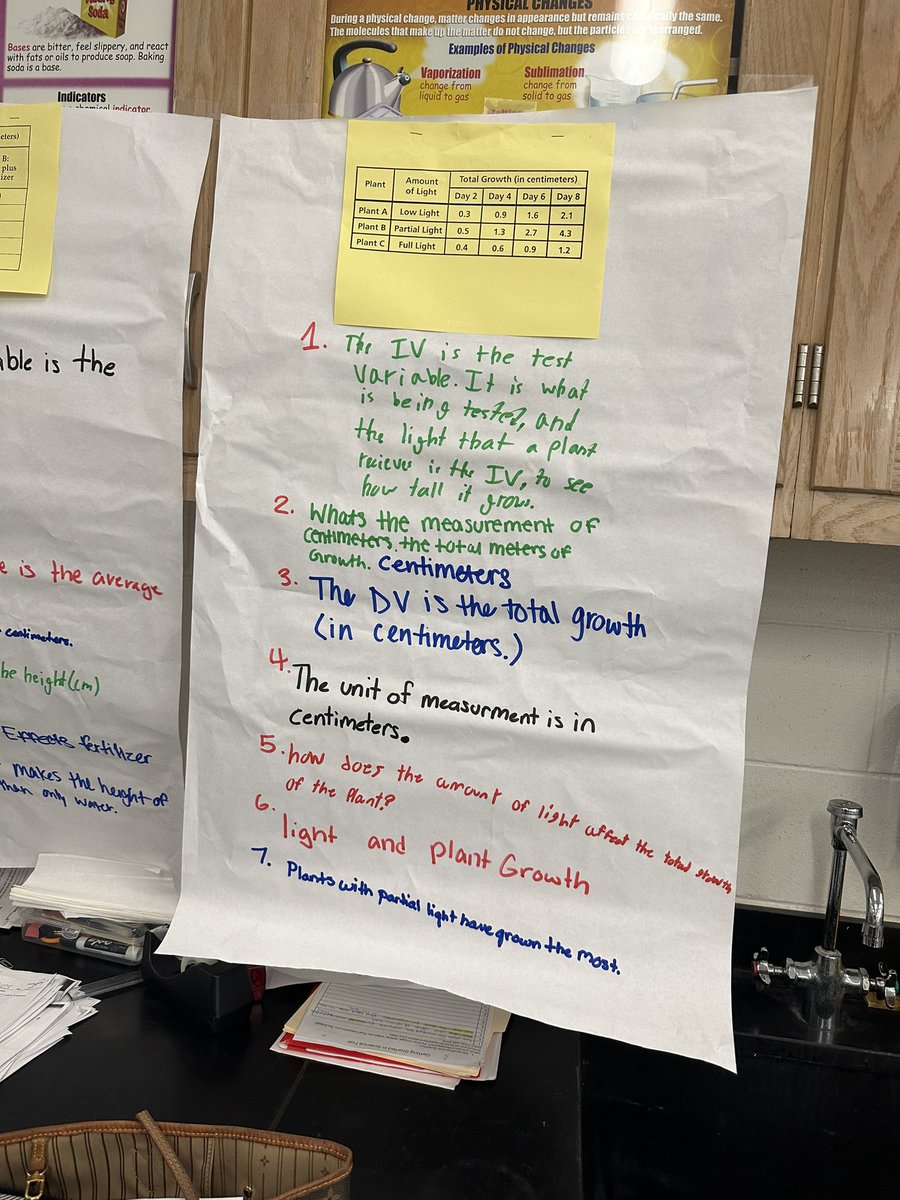 Soda
Bases are bitter, feel slippery, and react
with fats or oils to produce soap. Baking
soda is a base.
Indicators
chemical indicator.
PHYSICAL CHANGES
During a physical change, matter changes in appearance but remains chemically the same.
The molecules that make up the matter do not change, but the particles are rearranged.
Examples of Physical Changes
Vaporization
change from
liquid to gas
Sublimation
change from
solid to gas
eters)
B:
plus
izer
able is the
e is the average
centimeters.
he height (cm)
Effects fertilizer
makes the height of
than only water.
Plant Amount of Light Total Growth (in centimeters)
Day 2 Day 4 Day 6 Day 8
Plant A Low Light 0.3 0.9 1.6 2.1
Plant B Partial Light 0.5 1.3 2.7 4.3
Plant C Full Light 0.4 0.6 0.9 1.2
1. The IV is the test
variable. It is what
is being tested, and
the light that a plant
recieves is the IV, to see
how tall it grow.
2. Whats the measurement of
centimeters. the total meters of
Growth. Centimeters
3. The DV is the total growth
(in centimeters.)
4. The unit of measurment is in
centimeters.
5. how does the amount of light affect the total growth
of the Plant?
6. light and plant Growth
7. Plants with partial light have grown the most.